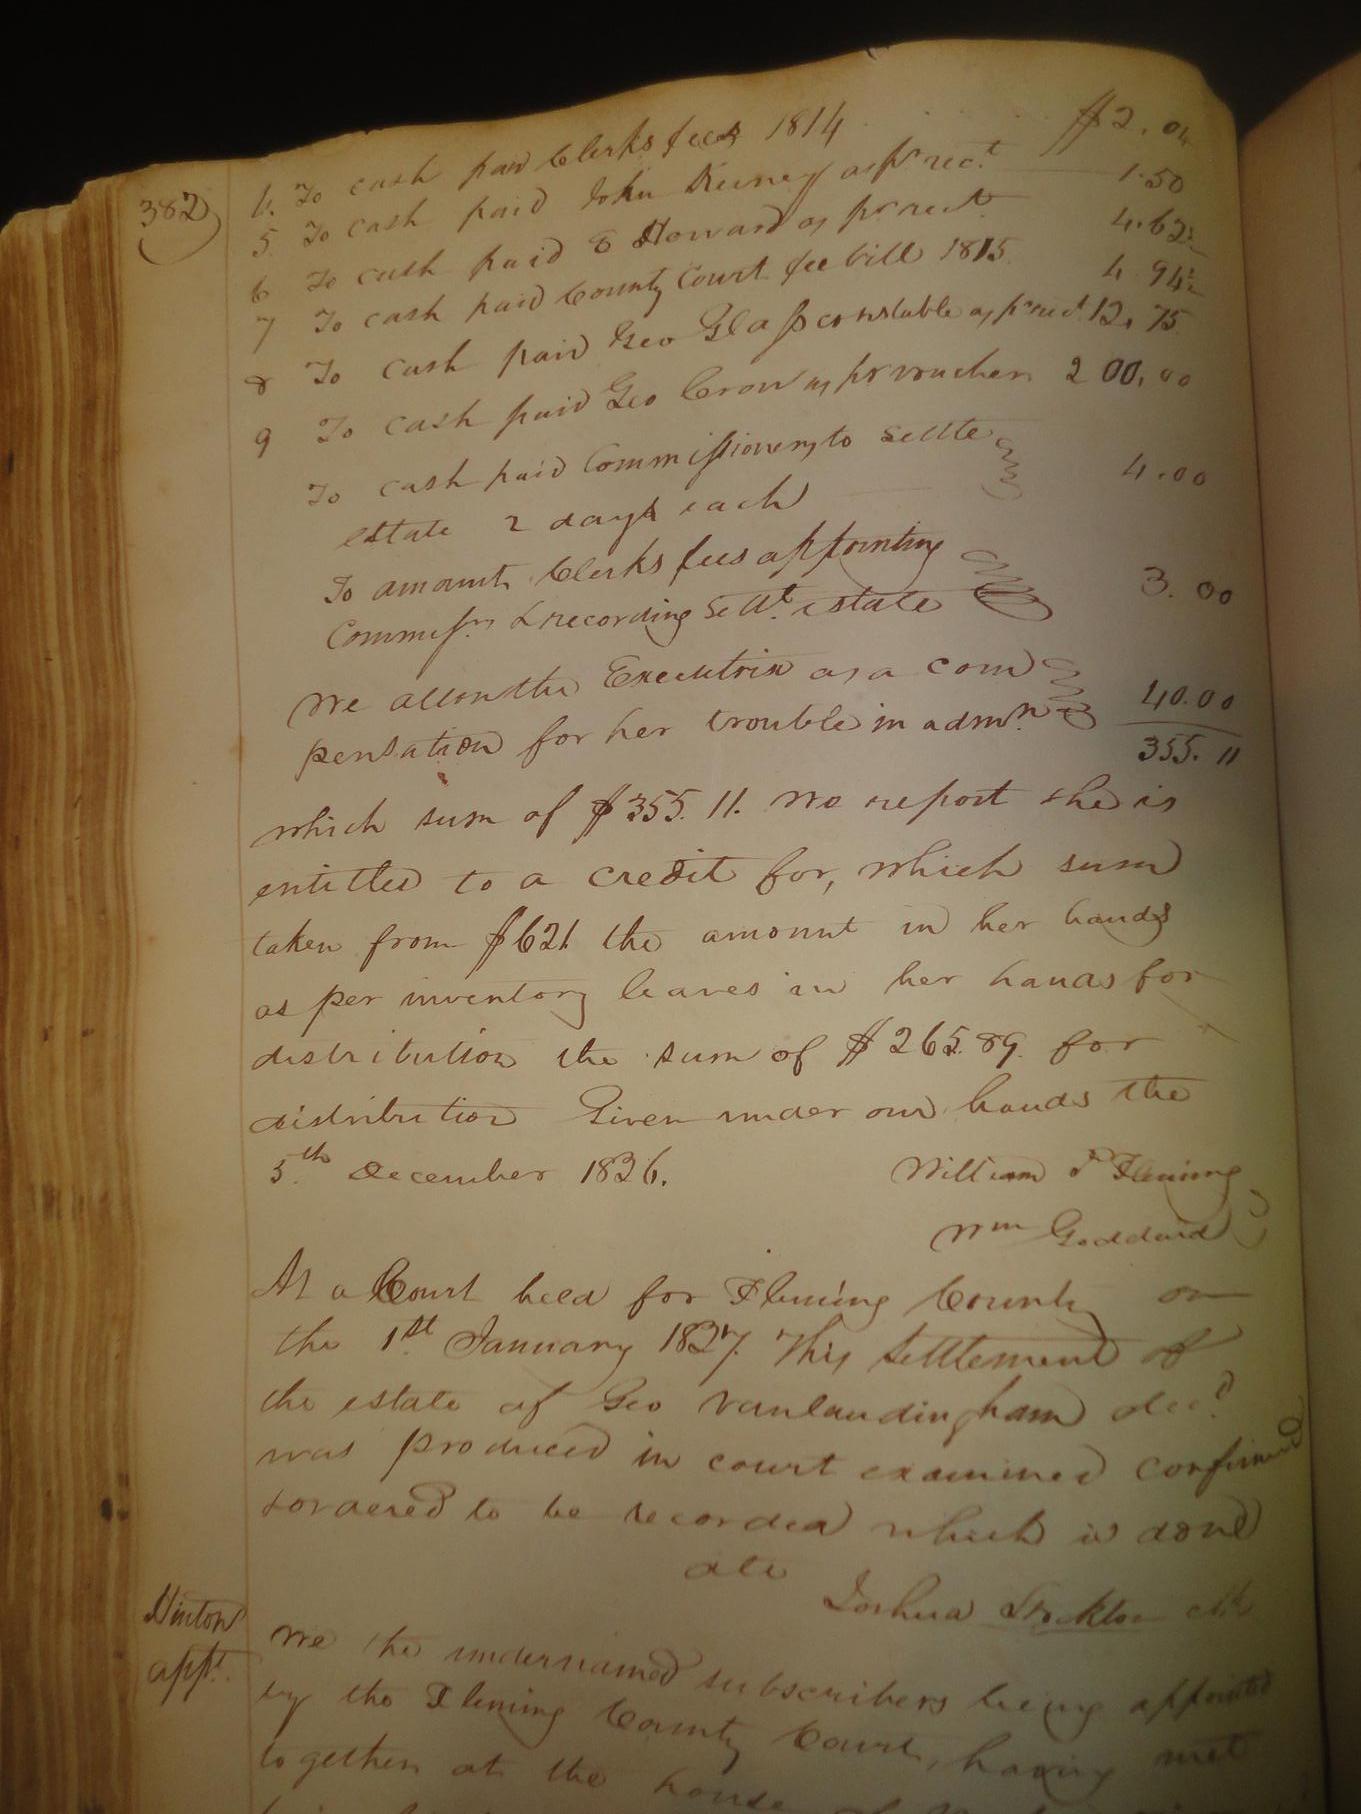 382
4. To cash paid Clerks fees 1814 $2.04
5 To cash paid John Keeney as pr rect. 1.50
6 To cash paid E Howard as pr rect 4.62½
7 To cash paid County Court fee bill 1815 4 94½
8 To cash paid Geo Glass constable as pr rect 12.75
9 To cash paid Geo Crow as pr voucher 200.00
To cash paid Commissioners to settle
estate 2 days each 4.00
To amount Clerks fees appointing
Commissrs & recording Settt estate 3.00
We allow the Executrix as a com
pensation for her trouble in admn 40.00
355.11
which sum of $355.11. we report she is
entitled to a credit for, which sum
taken from $621 the amount in her hands
as per inventory leaves in her hands for
distribution the sum of $265.89. for
distribution Given under our hands the
5th December 1826.
William P Fleming
Wm Goddard
At a Court held for Fleming County on
the 1st January 1827. This settlement of
the estate of Geo Vanlandingham decd
was produced in court examined confirmed
& ordered to be recorded which is done
Joshua Stockton
Hinton
appt.
We the undernamed subscribers being appointed
by the Fleming County Court, having met
together at the house of